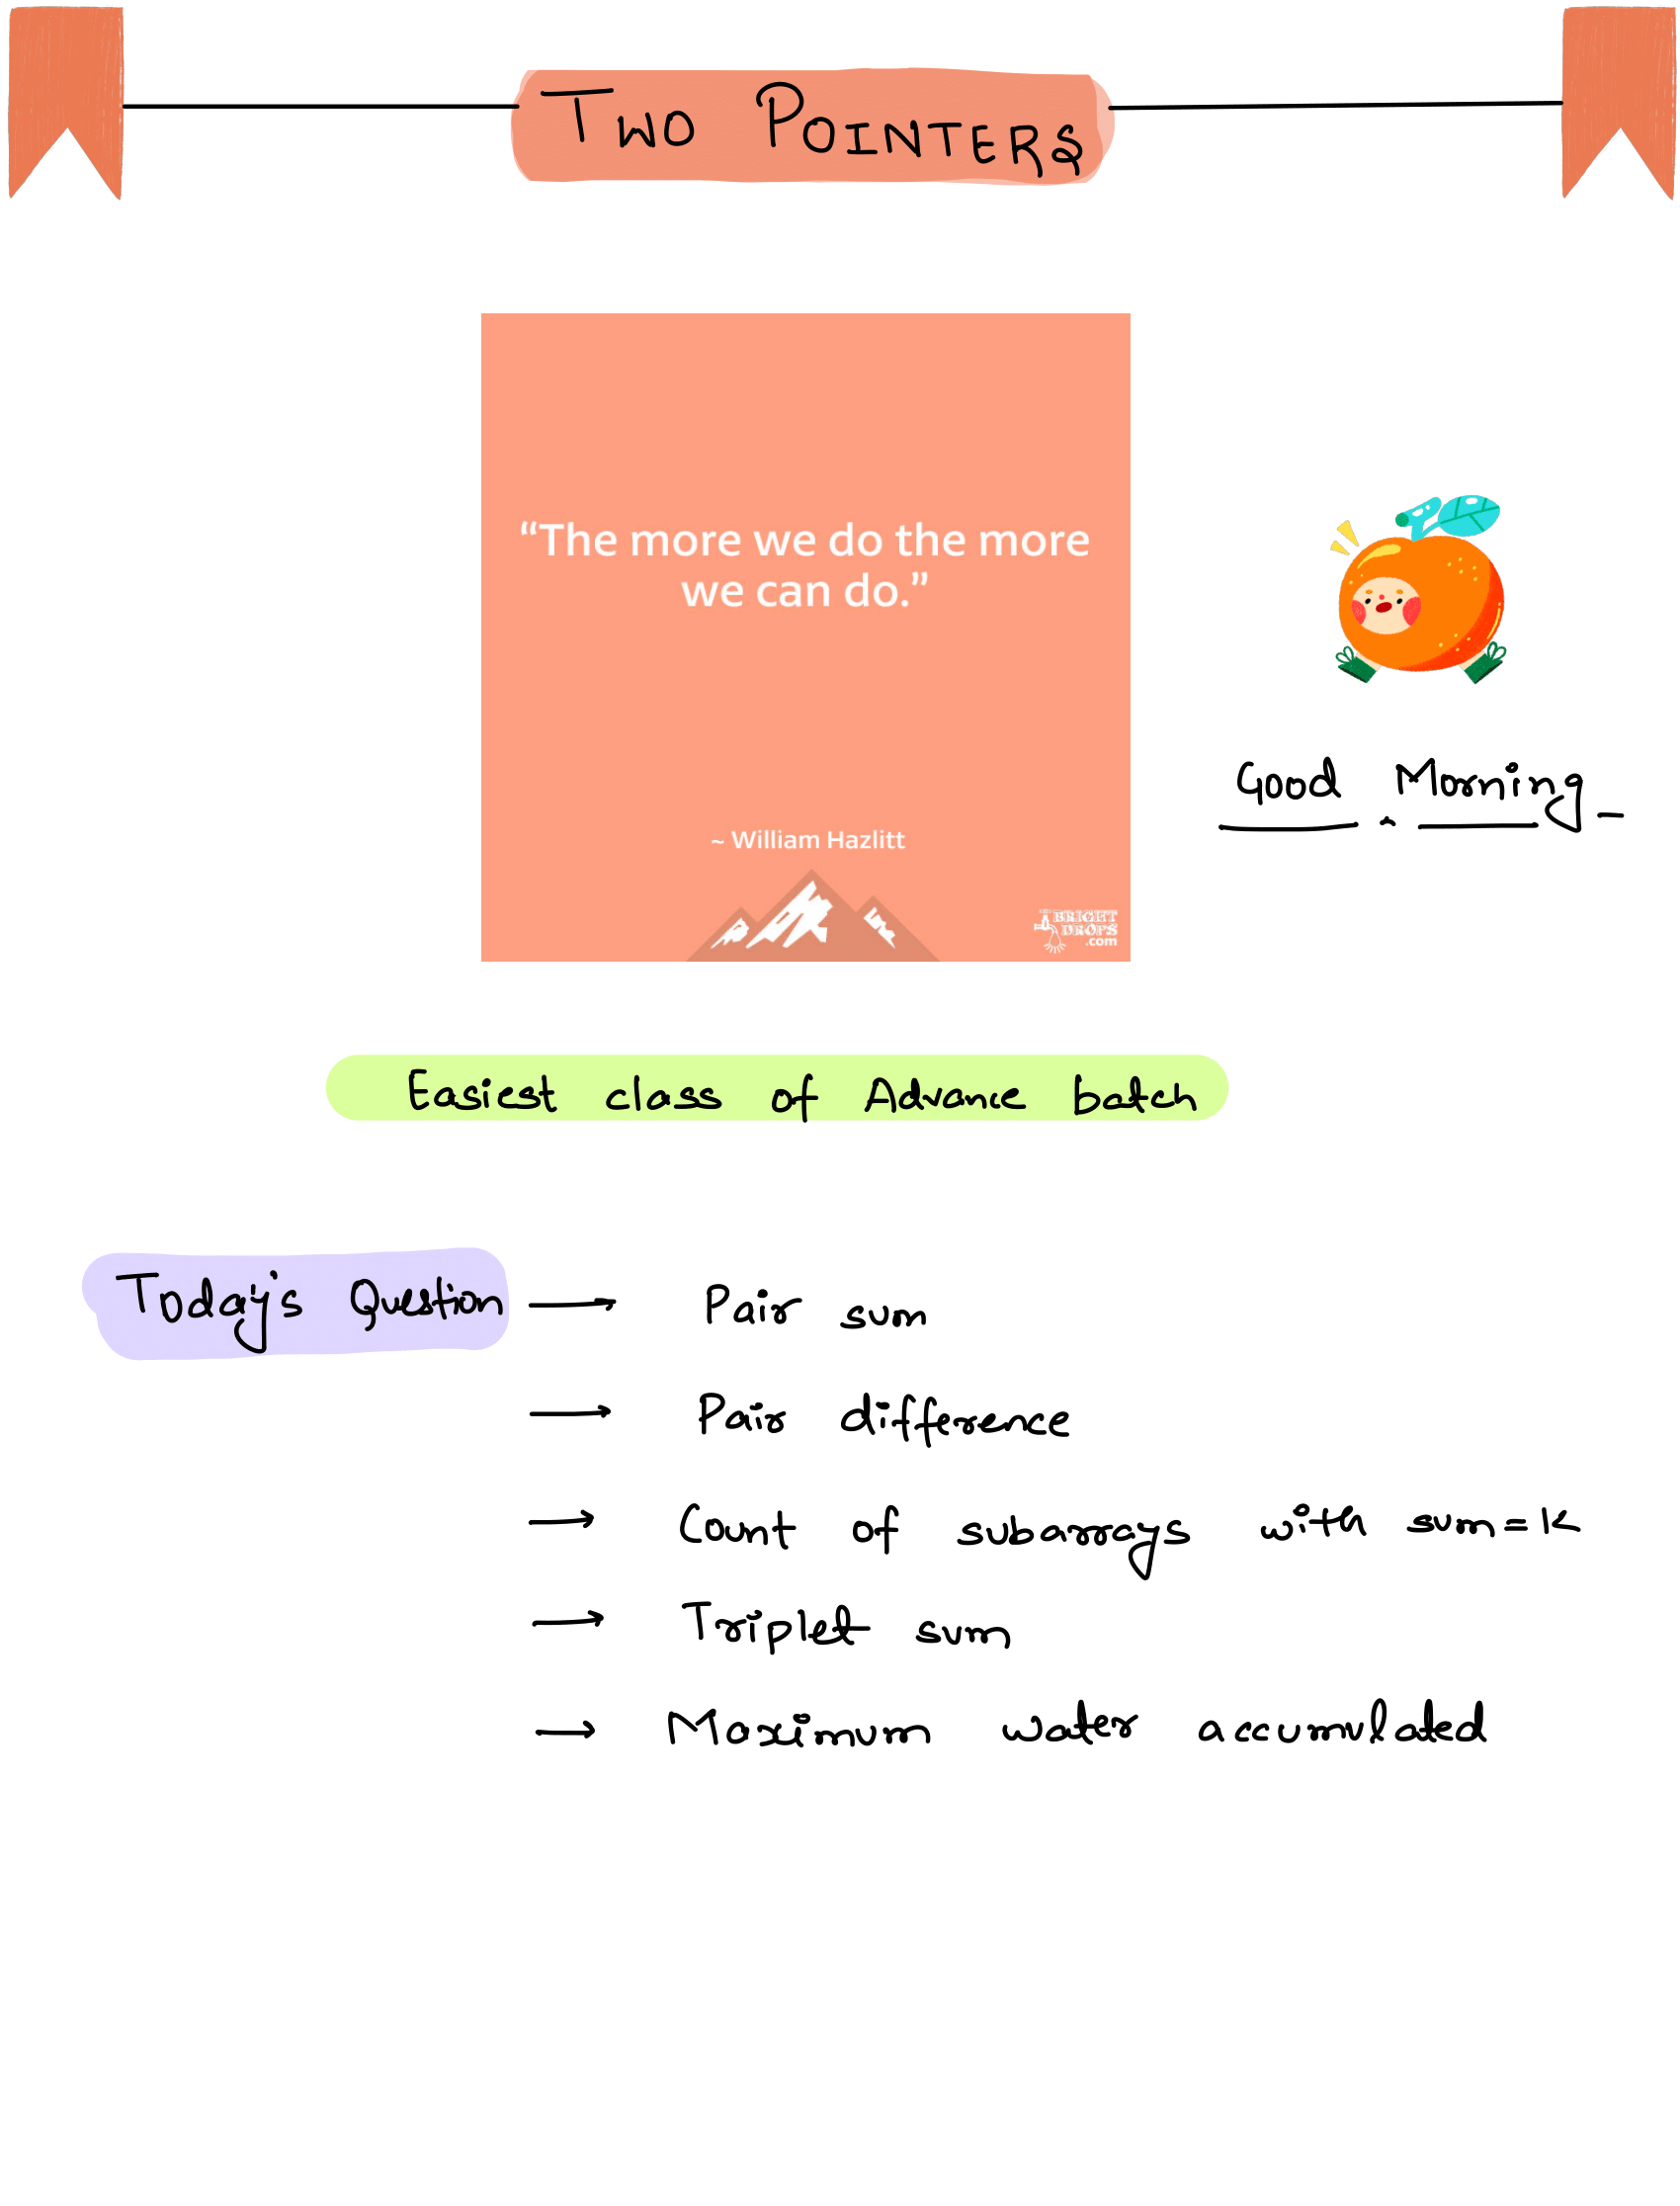 TWO POINTERS
“The more we do the more
we can do.”
~ William Hazlitt
BRIGHT
DROPS
.com
Good Morning
Easiest class of Advance batch
Today's Question → Pair sum
→ Pair difference
→ Count of subarrays with sum=k
→ Triplet sum
→ Maximum water accumulated